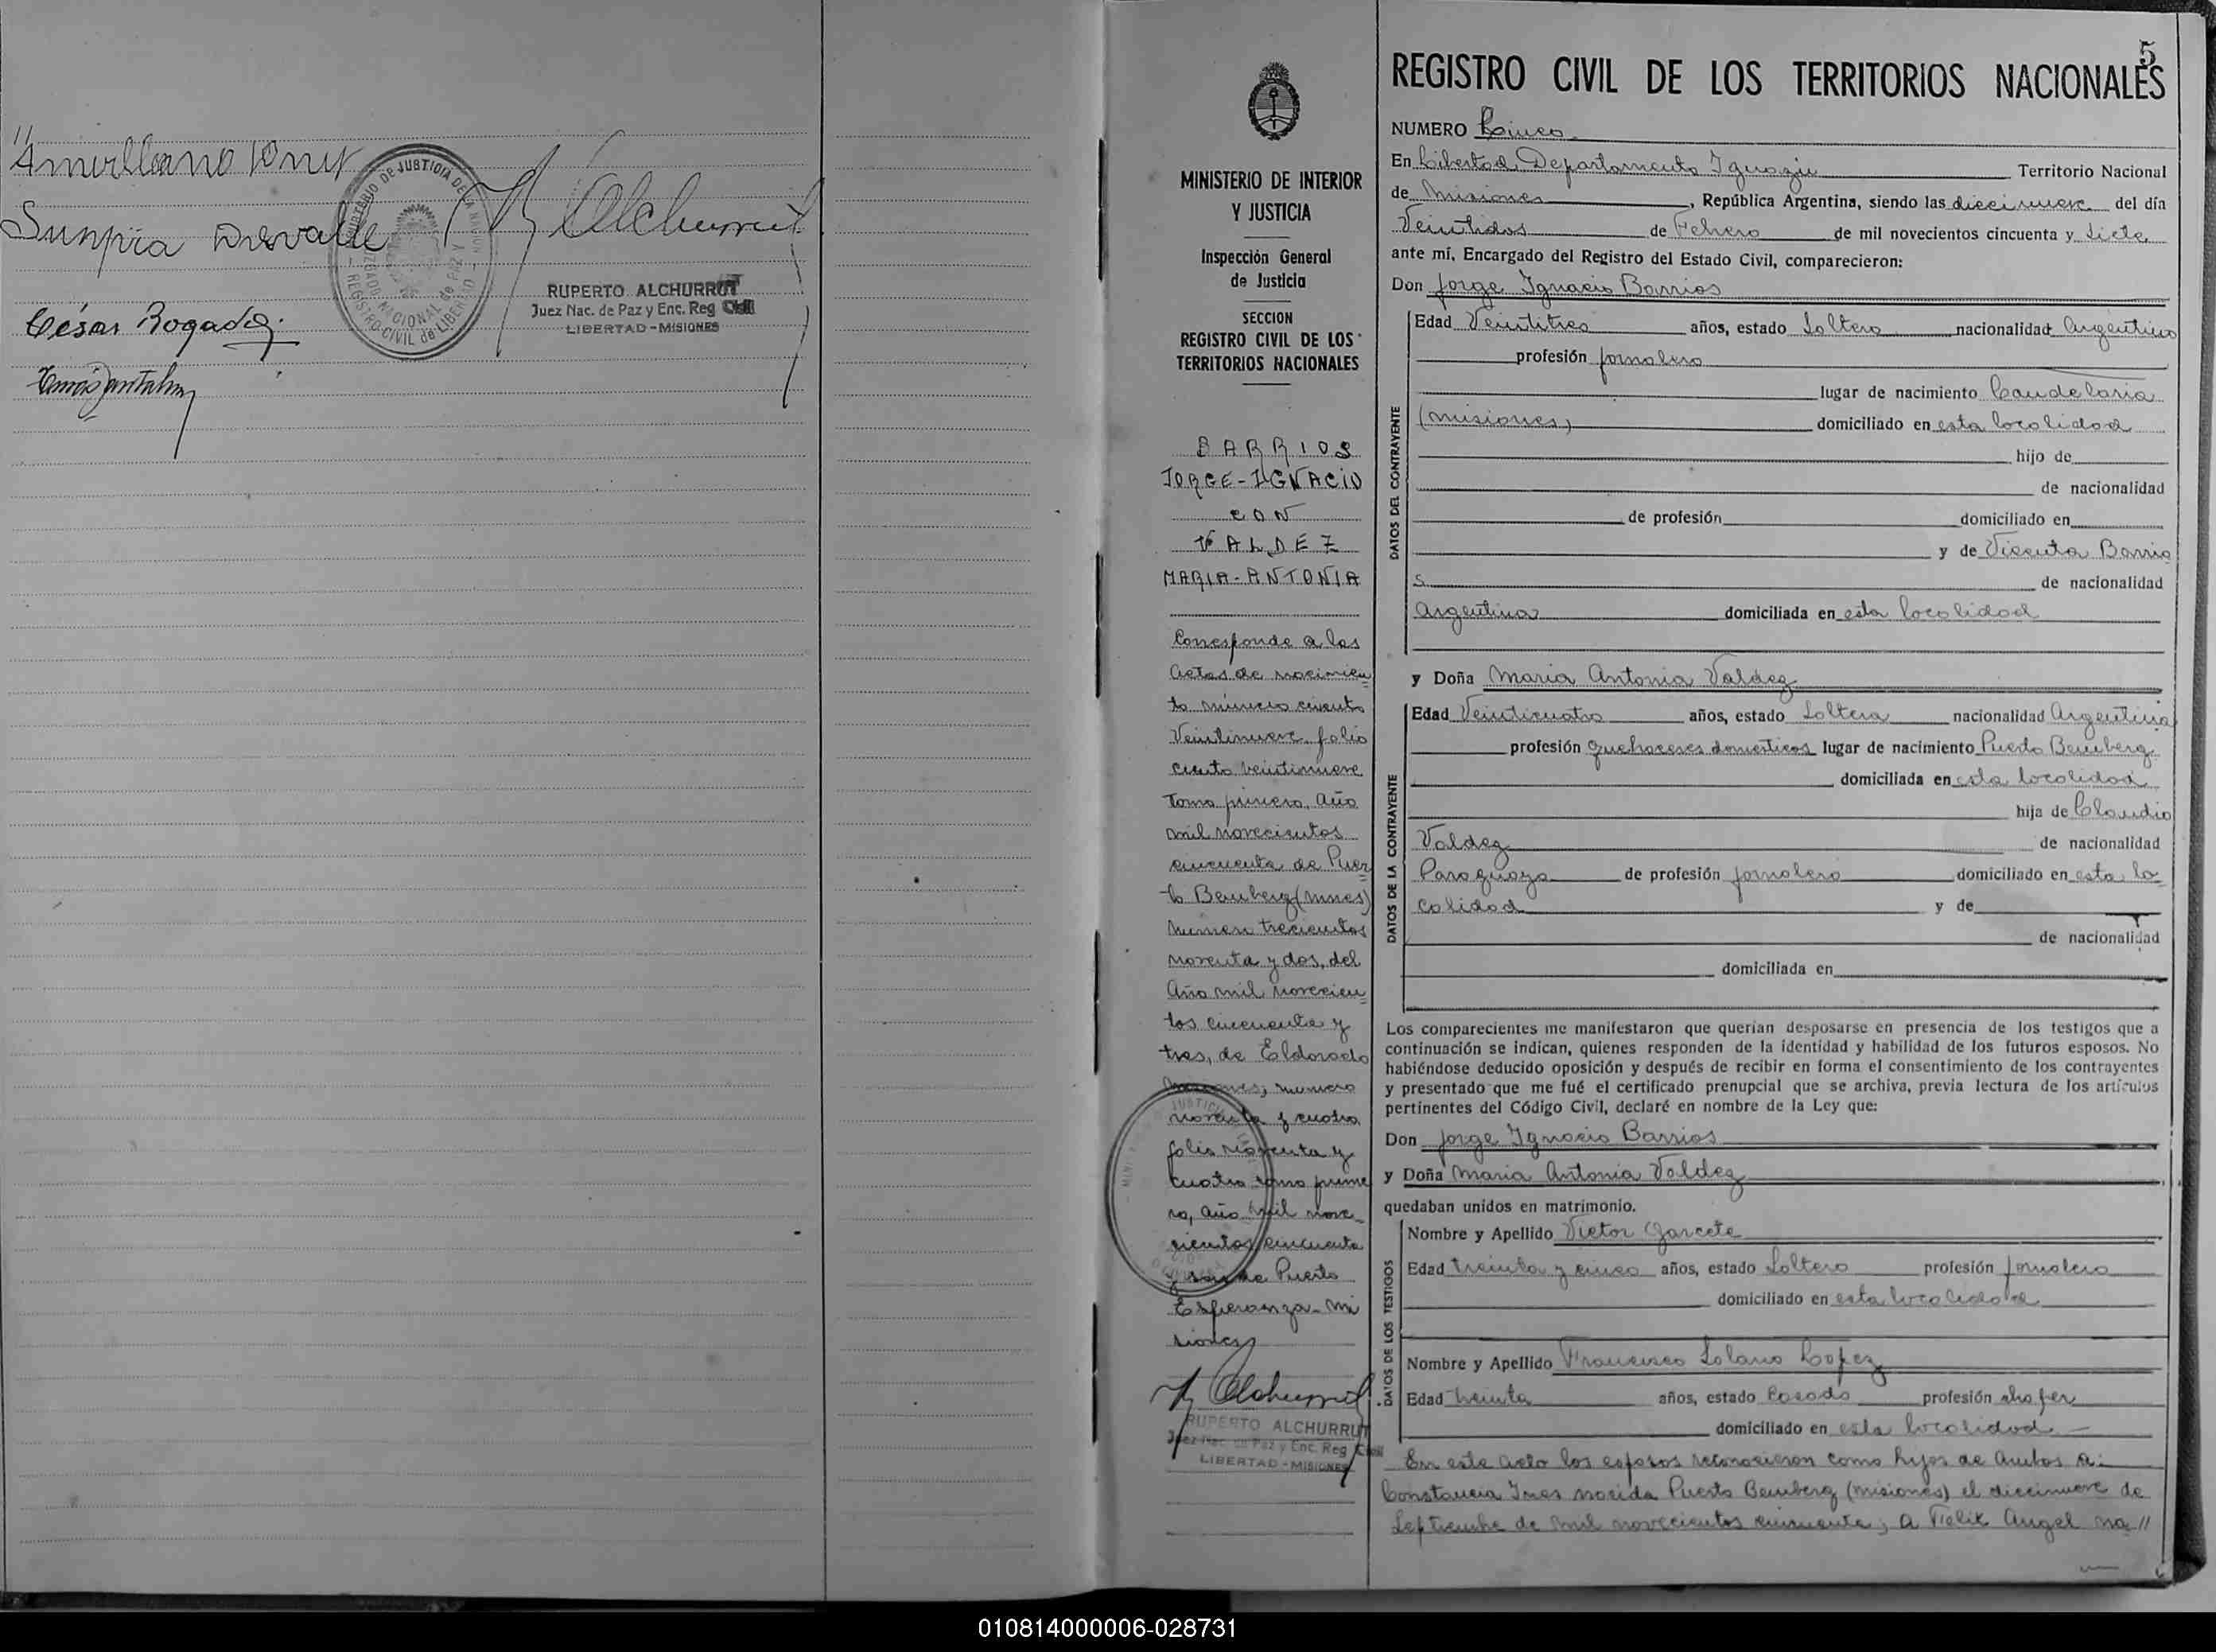 //
César Rogado
MINISTERIO DE JUSTICIA DE LA NACION
JUZGADO NACIONAL de PAZ Y
REGISTRO CIVIL de LIBERTAD
R Alchurrut
RUPERTO ALCHURRUT
Juez Nac. de Paz y Enc. Reg Civil
LIBERTAD - MISIONES
MINISTERIO DE INTERIOR
Y JUSTICIA
Inspección General
de Justicia
SECCION
REGISTRO CIVIL DE LOS
TERRITORIOS NACIONALES
BARRIOS
JORGE-IGNACIO
CON
VALDEZ
MARIA-ANTONIA
Corresponde a las
Actas de nacimien
to número ciento
Veintinueve folio
ciento veintinueve
Tomo primero, año
mil novecientos
cincuenta de Puer
to Bemberg (Mnes)
Numero trecientos
noventa y dos, del
Año mil novecien
tos cincuenta y
tres, de Eldorado
Misiones, numero
noventa y cuatro
folio noventa y
cuatro tomo prime
ro, año mil nove-
cientos cincuenta
y de Puerto
Esperanza - Mi
siones
R Alchurrut
RUPERTO ALCHURRUT
Juez Nac. de Paz y Enc. Reg Civil
LIBERTAD - MISIONES
5
REGISTRO CIVIL DE LOS TERRITORIOS NACIONALES
NUMERO Cinco
En Libertad, Departamento Iguazú Territorio Nacional
de Misiones, República Argentina, siendo las diecinueve del día
Veintidos de Febrero de mil novecientos cincuenta y Siete
ante mí, Encargado del Registro del Estado Civil, comparecieron:
Don Jorge Ignacio Barrios
DATOS DEL CONTRAYENTE
Edad Veintitres años, estado Soltero nacionalidad Argentino
profesión jornalero
lugar de nacimiento Candelaria
(Misiones) domiciliado en esta localidad
hijo de
de nacionalidad
de profesión domiciliado en
y de Vicenta Barrio
s de nacionalidad
Argentina domiciliada en esta localidad
y Doña Maria Antonia Valdez
DATOS DE LA CONTRAYENTE
Edad Veinticuatro años, estado Soltera nacionalidad Argentina
profesión quehaceres domesticos lugar de nacimiento Puerto Bemberg
domiciliada en esta localidad
hija de Claudio
Valdez de nacionalidad
Paraguayo de profesión jornalero domiciliado en esta lo
calidad y de
de nacionalidad
domiciliada en
Los comparecientes me manifestaron que querían desposarse en presencia de los testigos que a
continuación se indican, quienes responden de la identidad y habilidad de los futuros esposos. No
habiéndose deducido oposición y después de recibir en forma el consentimiento de los contrayentes
y presentado que me fué el certificado prenupcial que se archiva, previa lectura de los artículos
pertinentes del Código Civil, declaré en nombre de la Ley que:
Don Jorge Ignacio Barrios
y Doña Maria Antonia Valdez
quedaban unidos en matrimonio.
DATOS DE LOS TESTIGOS
Nombre y Apellido Victor Garcete
Edad treinta y cinco años, estado Soltero profesión jornalero
domiciliado en esta localidad
Nombre y Apellido Francisco Solano Lopez
Edad treinta años, estado Casado profesión chofer
domiciliado en esta localidad
En este acto los esposos reconocieron como hijos de ambos a:
Constancia Ines nacida Puerto Bemberg (Misiones) el diecinueve de
Septiembre de mil novecientos cincuenta; a Felix Angel na //
010814000006-028731